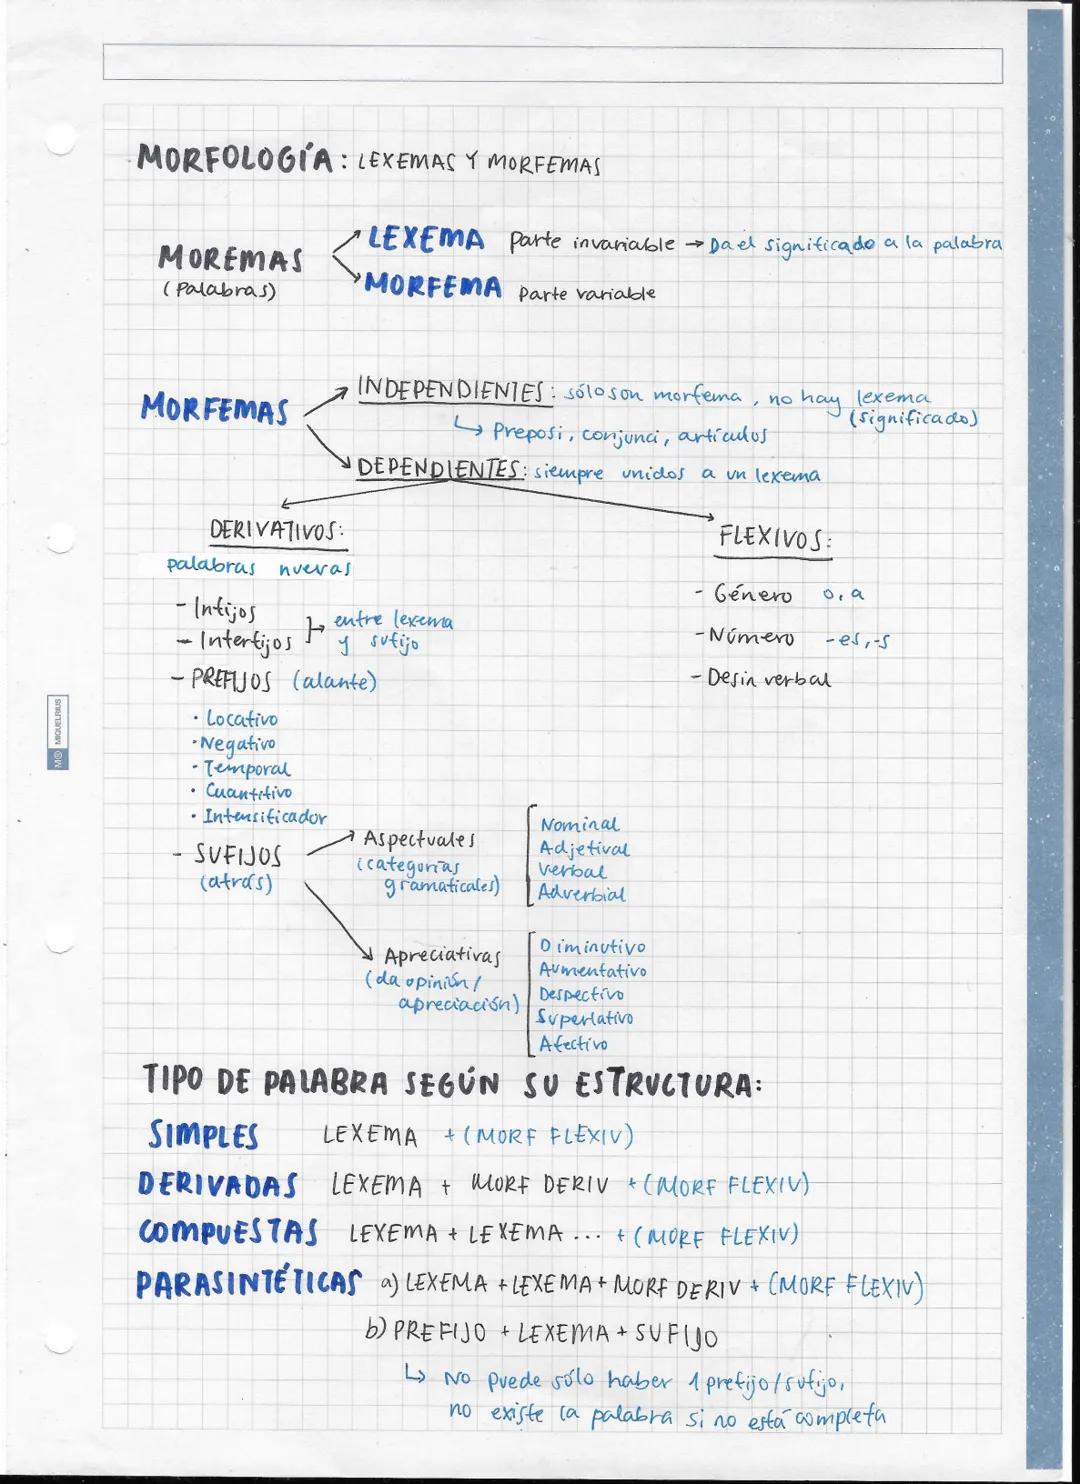 MORFOLOGÍA: LEXEMAS Y MORFEMAS
LEXEMA parte invariable → Da el significado a la palabra
MOREMAS
(Palabras)
MORFEMA parte variable
MORFEMAS
INDEPENDIENTES: sólo son morfema, no hay lexema
(significado)
↳ Preposi, conjunci, artículos
DEPENDIENTES: siempre unidos a un lexema
DERIVATIVOS:
palabras nuevas
- Infijos
- Interfijos
entre lexema
y sufijo
- PREFIJOS (alante)
· Locativo
· Negativo
· Temporal
· Cuantitivo
· Intensificador
- SUFIJOS
(atrás)
Aspectuales
(categorías
gramaticales)
Nominal
Adjetival
Verbal
Adverbial
Apreciativas
(da opinión/
apreciación)
Diminutivo
Aumentativo
Despectivo
Superlativo
Afectivo
FLEXIVOS:
- Género o, a
- Número -es, -s
- Desin verbal
TIPO DE PALABRA SEGÚN SU ESTRUCTURA:
SIMPLES LEXEMA + (MORF FLEXIV)
DERIVADAS LEXEMA + MORF DERIV + (MORF FLEXIV)
COMPUESTAS LEXEMA + LEXEMA ... + (MORF FLEXIV)
PARASINTÉTICAS a) LEXEMA + LEXEMA + MORF DERIV + (MORF FLEXIV)
b) PREFIJO + LEXEMA + SUFIJO
↳ No puede sólo haber 1 prefijo/sufijo,
no existe la palabra si no está completa
MIQUELRIUS